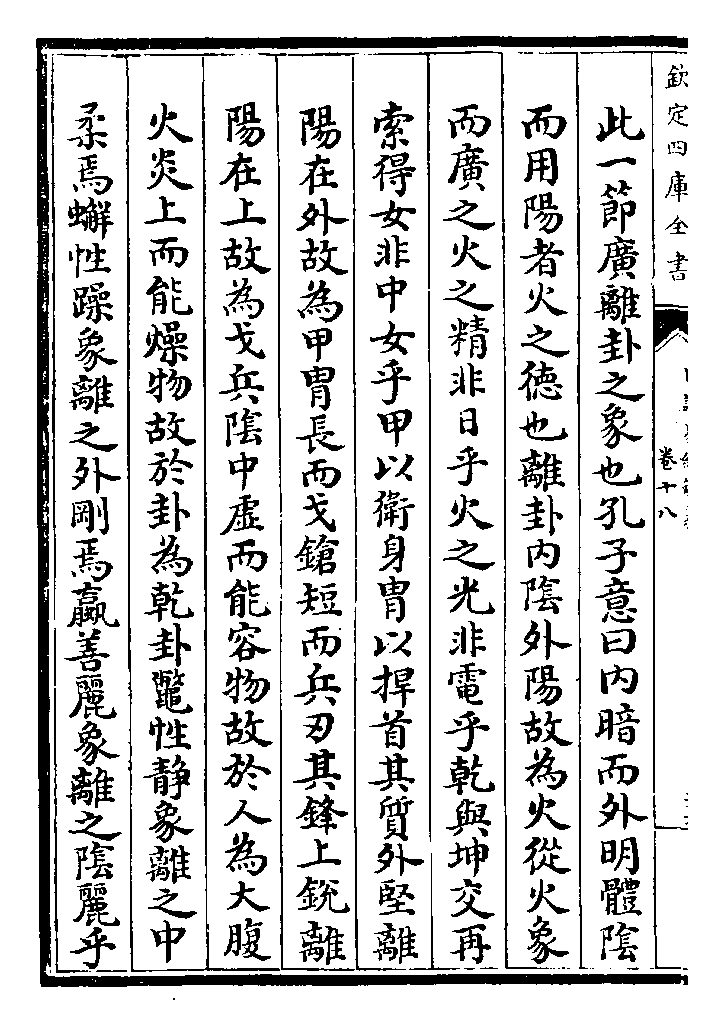 欽定四庫全書
卷十八
此一節廣離卦之象也孔子意曰內暗而外明體陰
而用陽者火之德也離卦內陰外陽故為火從火象
而廣之火之精非日乎火之光非電乎乾與坤交再
索得女非中女乎甲以衛身胄以捍首其質外堅離
陽在外故為甲胄長而戈鎗短而兵刃其鋒上銳離
陽在上故為戈兵陰中虛而能容物故於人為大腹
火炎上而能燥物故於卦為乾卦鼈性静象離之中
柔焉蠏性躁象離之外剛焉蠃善麗象離之陰麗乎